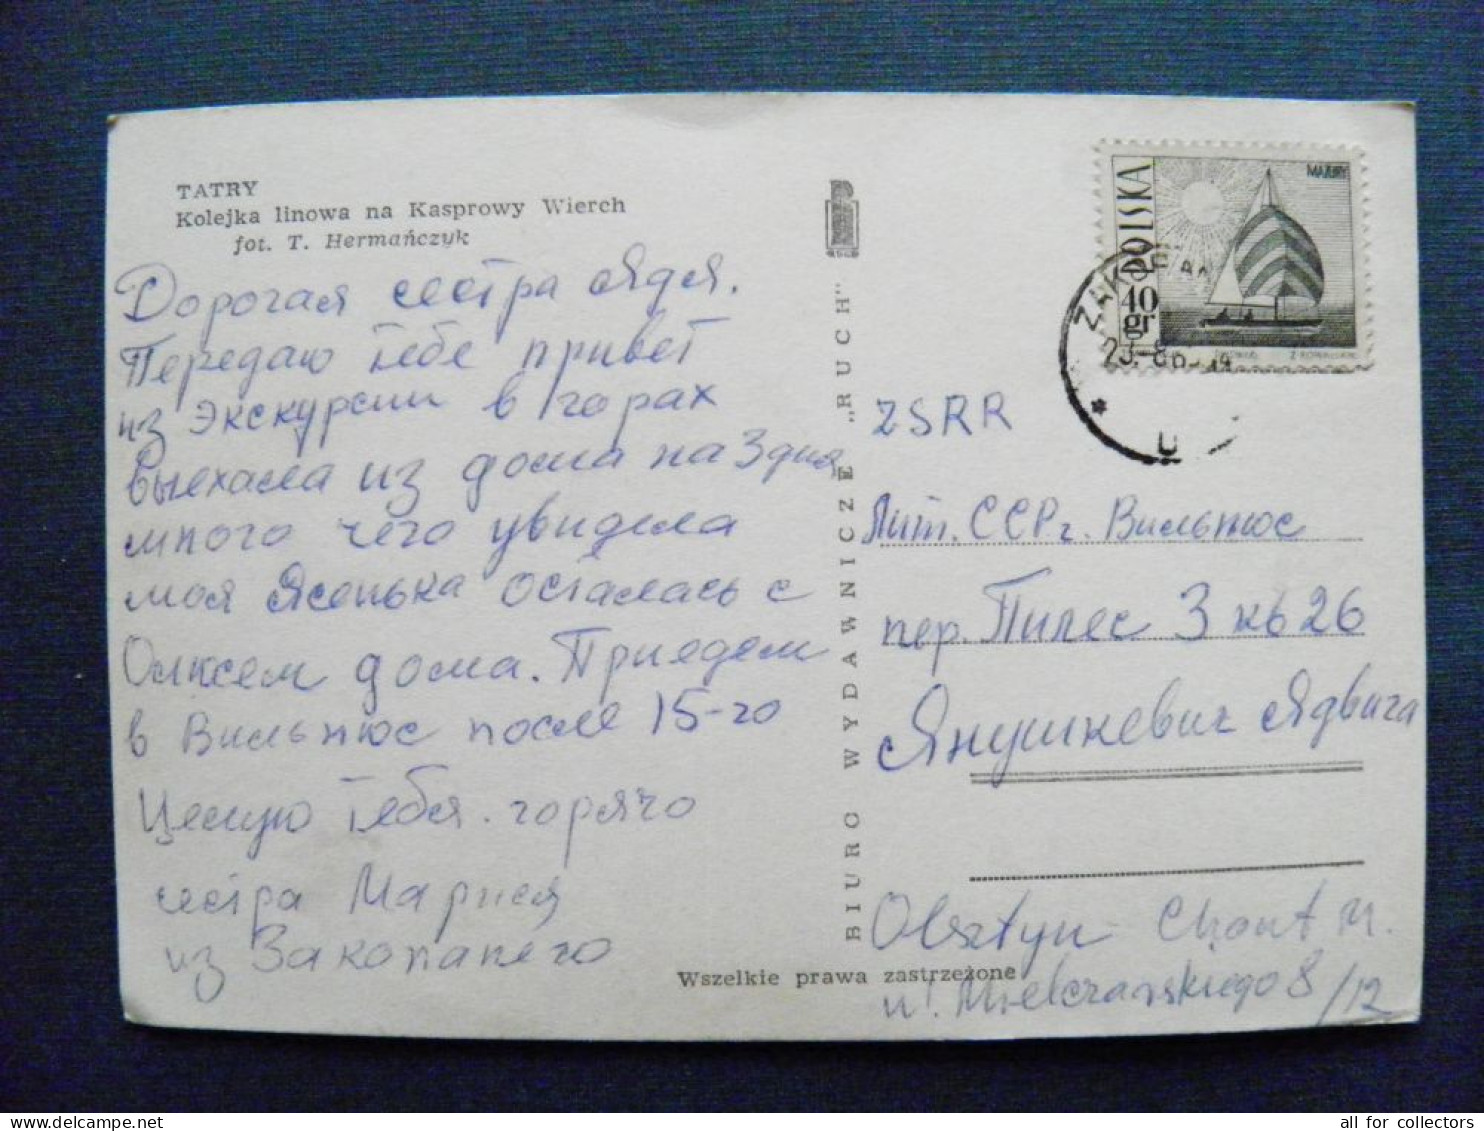 TATRY
Kolejka linowa na Kasprowy Wierch
fot. T. Hermańczyk
Дорогая сестра Ядя.
Передаю тебе привет
из экскурсии в горах
выехала из дома на 3 дня
много чего увидела
моя Ясенька осталась с
дома. Приедем
в Вильнюс после 15-го
Целую тебя горячо
сестра Марися
из Закопанего
BIURO WYDAWNICZE „RUCH"
Wszelkie prawa zastrzeżone
POLSKA
40
gr
MAZURY
ZAKOPANE
ZSRR
Лит. ССР г. Вильнюс
пер. Пилес 3 кв 26
Янушкевич Ядвига
Olsztyn M.
ul. 8/12
all for collectors